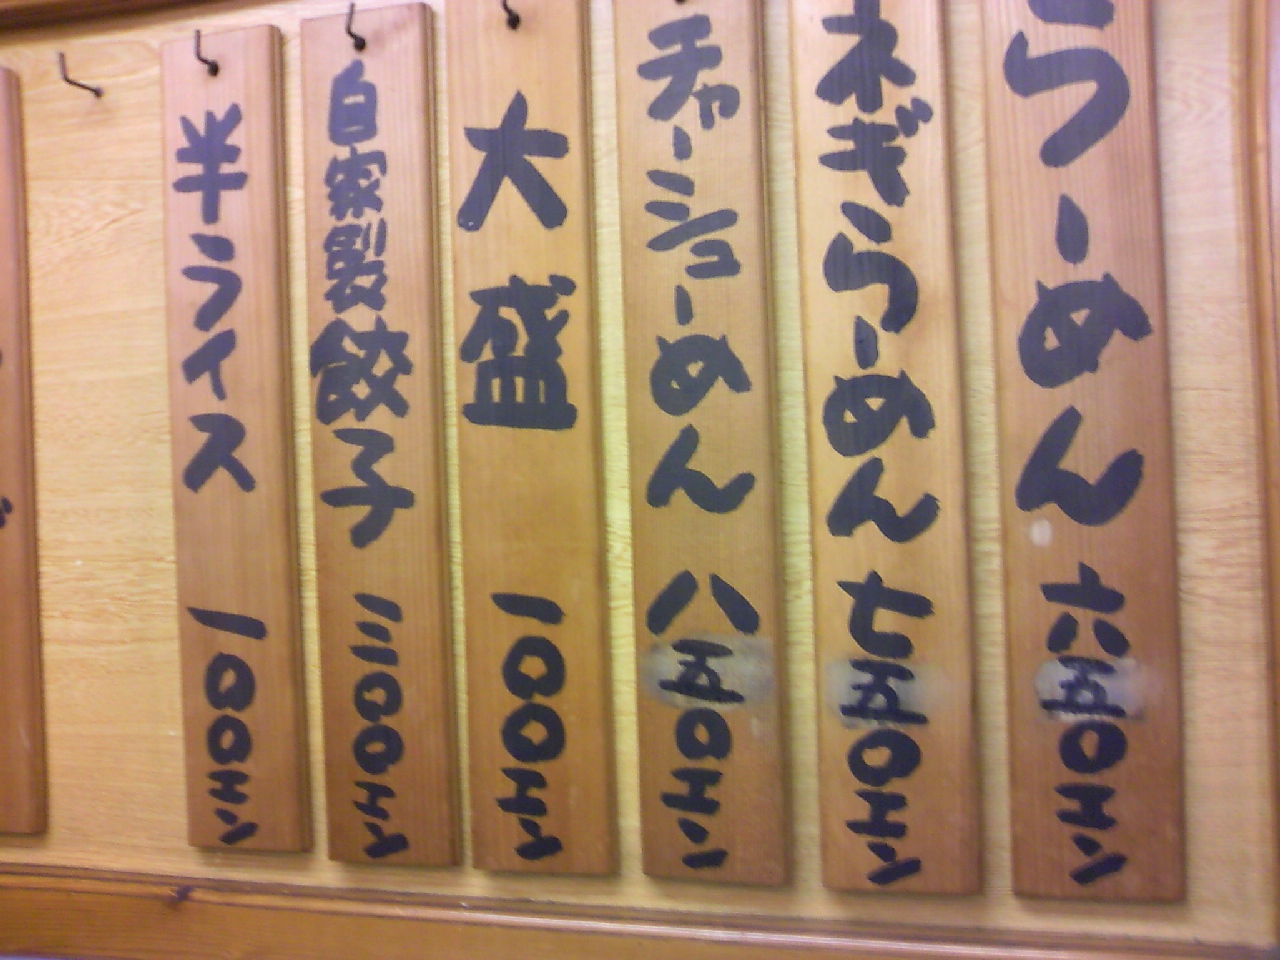 らーめん 六五〇エン
ネギらーめん 七五〇エン
チャーシューめん 八五〇エン
大盛 一〇〇エン
自家製餃子 三〇〇エン
半ライス 一〇〇エン